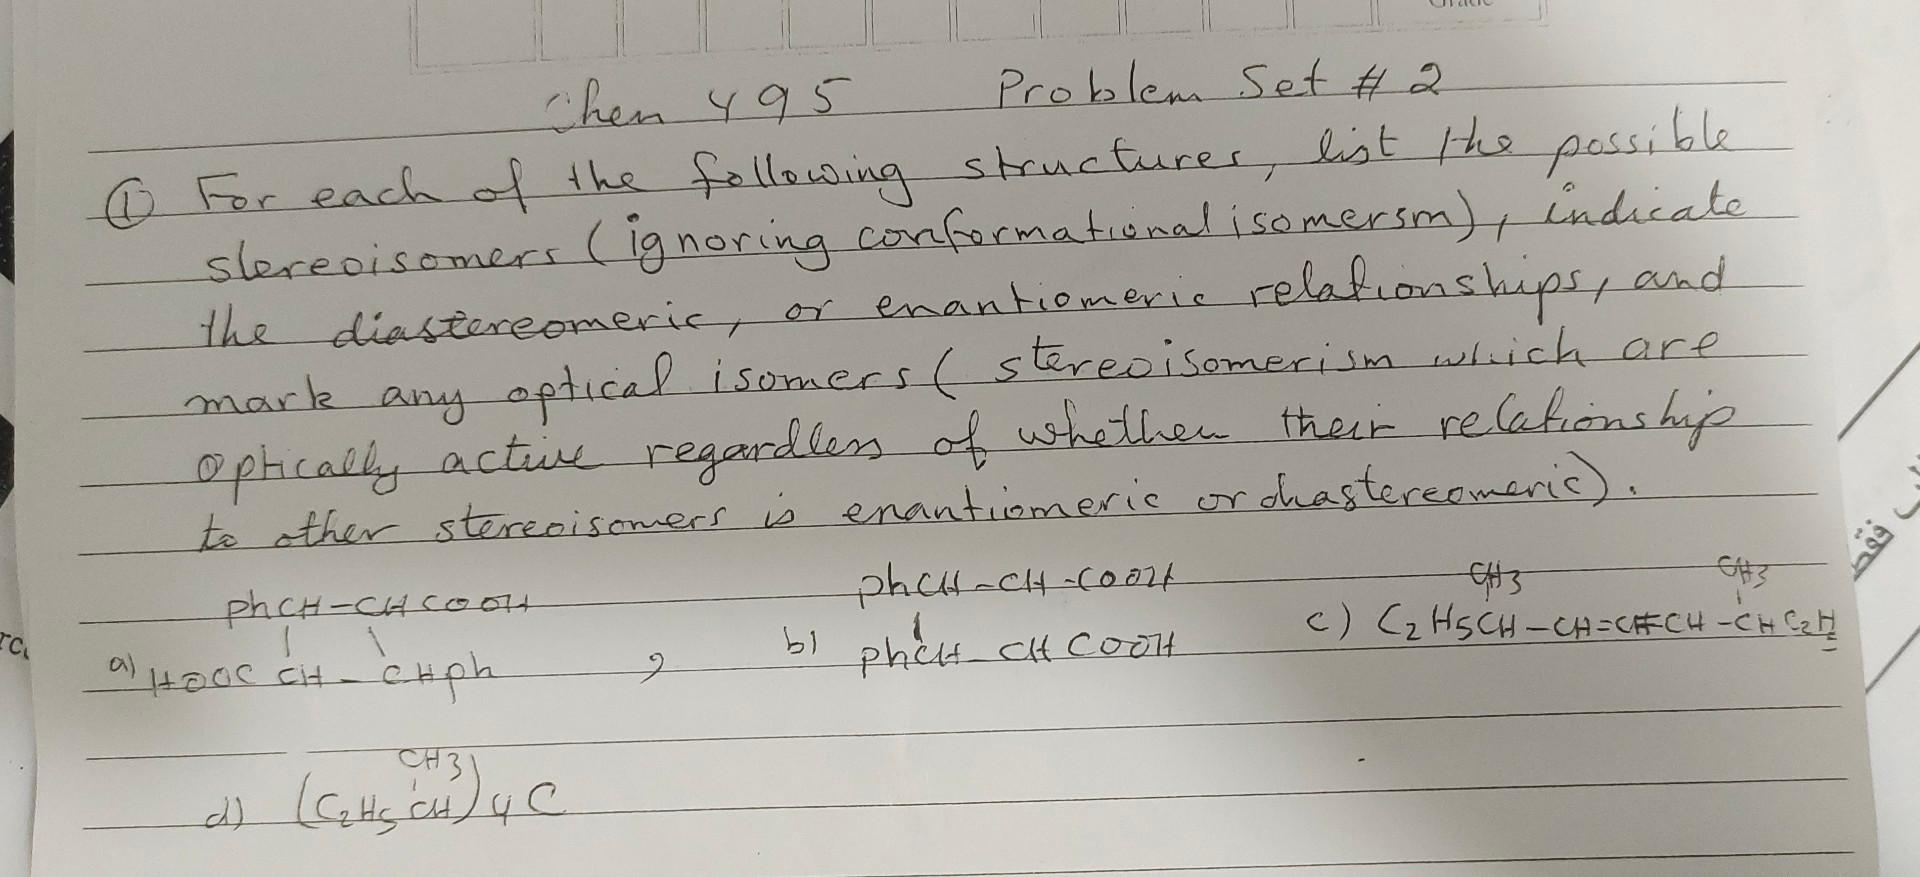 Chem 495 Problem Set # 2
① For each of the following structures, list the possible
stereoisomers (ignoring conformational isomersm), indicate
the diastereomeric, or enantiomeric relationships, and
mark any optical isomers ( stereoisomerism which are
optically active regardless of whether their relationship
to other stereoisomers is enantiomeric or diastereomeric).
phCH-CHCOOH
a) HOOC CH - CHph ,
phCH-CH-COOH
b) phCH-CH COOH
CH3 CH3
c) C2H5CH-CH=CH-CH-CHC2H5
CH3
d) (C2H5CH)4C
فقط